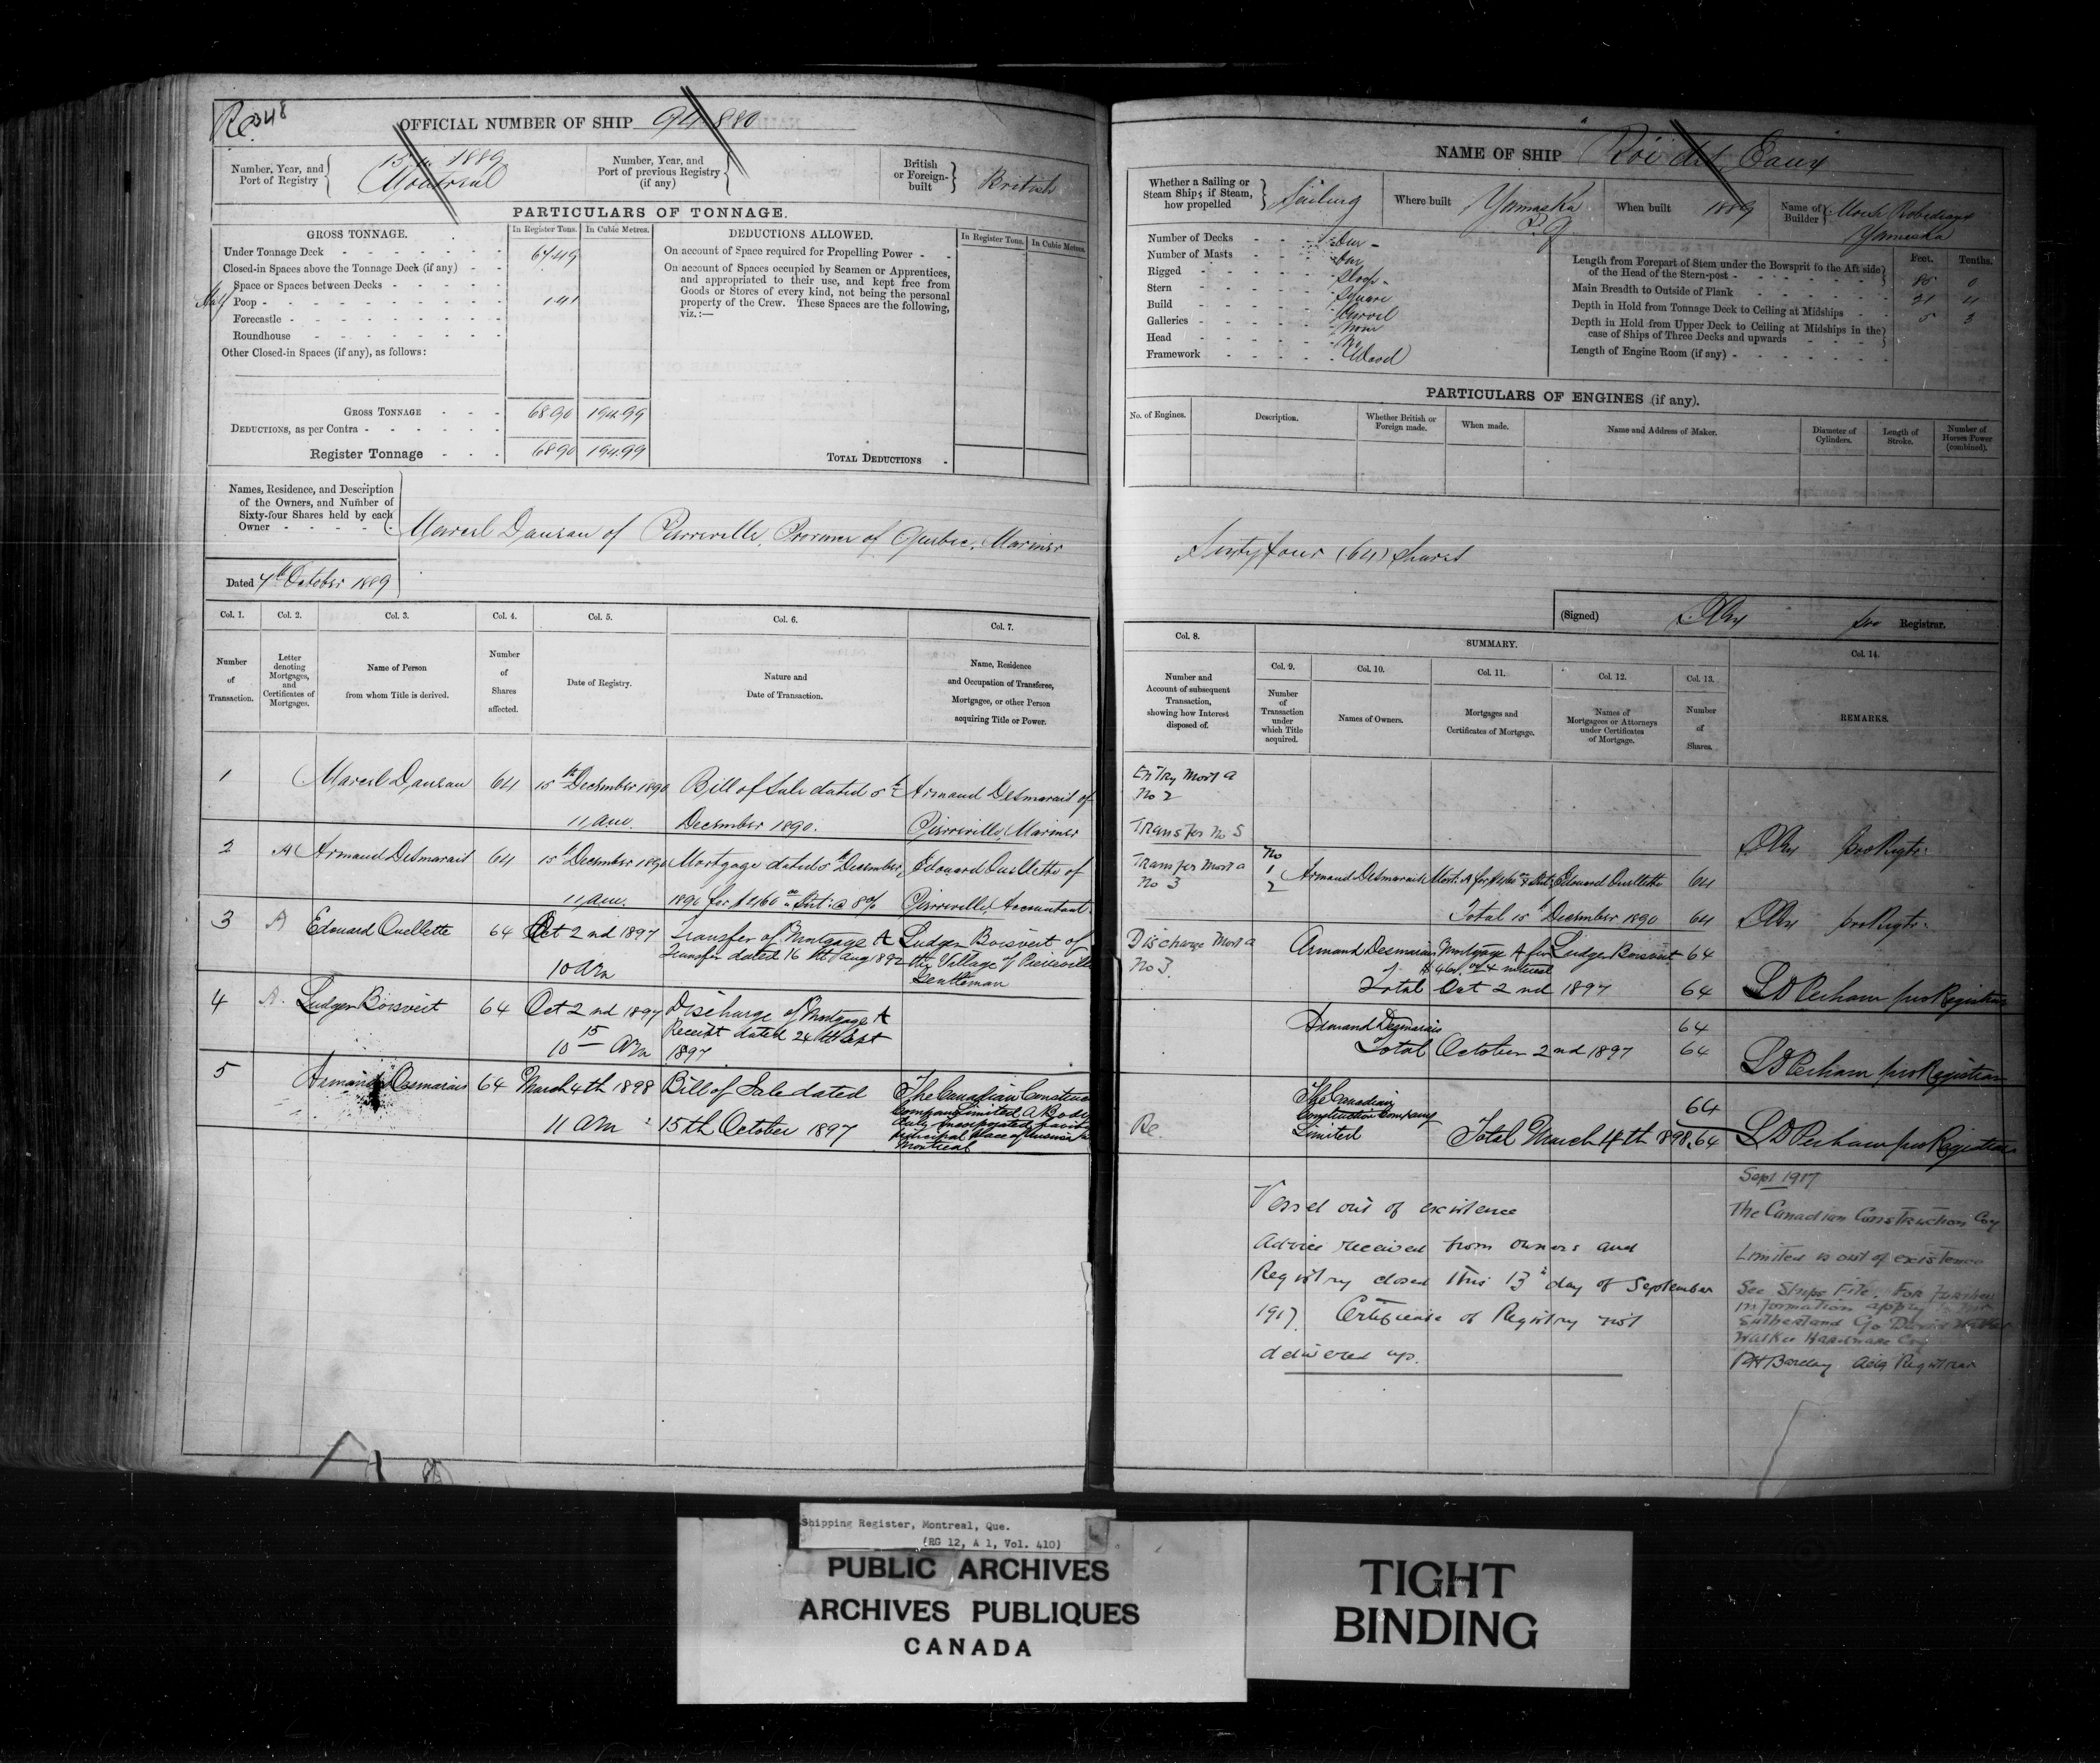 Re 348
OFFICIAL NUMBER OF SHIP 94880
Number, Year, and Port of Registry
1889
Montreal
Number, Year, and Port of previous Registry (if any)
British or Foreign-built
British
PARTICULARS OF TONNAGE.
GROSS TONNAGE.
In Register Tons.
In Cubic Metres.
DEDUCTIONS ALLOWED.
In Register Tons.
In Cubic Metres.
Under Tonnage Deck
67.49
Closed-in Spaces above the Tonnage Deck (if any)
Space or Spaces between Decks
Half Poop
1.41
Forecastle
Roundhouse
Other Closed-in Spaces (if any), as follows:
On account of Space required for Propelling Power
On account of Spaces occupied by Seamen or Apprentices,
and appropriated to their use, and kept free from
Goods or Stores of every kind, not being the personal
property of the Crew. These Spaces are the following,
viz.:—
GROSS TONNAGE
68.90 194.99
DEDUCTIONS, as per Contra
Register Tonnage
68.90 194.99
TOTAL DEDUCTIONS
Names, Residence, and Description
of the Owners, and Number of
Sixty-four Shares held by each
Owner
Marcel Dauzau of Pierreville, Province of Quebec, Mariner
Dated 7th October 1889
Col. 1.
Col. 2.
Col. 3.
Col. 4.
Col. 5.
Col. 6.
Col. 7.
Number of Transaction.
Letter denoting Mortgages, and Certificates of Mortgages.
Name of Person from whom Title is derived.
Number of Shares affected.
Date of Registry.
Nature and Date of Transaction.
Name, Residence and Occupation of Transferee, Mortgagee, or other Person acquiring Title or Power.
1 Marcel Dauzau 64 15th December 1890 Bill of Sale dated 5th Armand Desmarais of
11 am. December 1890. Pierreville, Mariner
2 A Armand Desmarais 64 15th December 1890 Mortgage dated 5th December, Edouard Ouellette of
11 am. 1890 for $460 00 & Int: @ 8% Pierreville, Accountant
3 A Edouard Ouellette 64 Oct 2nd 1897 Transfer of Mortgage A Ludger Boisvert of
Transfer dated 16th Aug 1892 the Village of Pierreville
10 Am Gentleman
4 A. Ludger Boisvert 64 Oct 2nd 1897 Discharge of Mortgage A
10 15 Am Receipt dated 24th Sept
1897
5 Armand Desmarais 64 March 4th 1898 Bill of Sale dated The Canadian Construction
Company Limited, A Body
11 Am 15th October 1897 duly incorporated having its
principal place of business in
Montreal
NAME OF SHIP "Roi des Eaux
Whether a Sailing or Steam Ship; if Steam, how propelled
Sailing
Where built
Yamaska
P.Q
When built
1889
Name of Builder
Yamaska
Number of Decks One
Number of Masts One
Rigged Sloop
Stern Square
Build Carvel
Galleries None
Head No
Framework Wood
Feet.
Tenths.
Length from Forepart of Stem under the Bowsprit to the Aft side
of the Head of the Stern-post
85 0
Main Breadth to Outside of Plank
21 4
Depth in Hold from Tonnage Deck to Ceiling at Midships
5 3
Depth in Hold from Upper Deck to Ceiling at Midships in the
case of Ships of Three Decks and upwards
Length of Engine Room (if any)
PARTICULARS OF ENGINES (if any).
No. of Engines.
Description.
Whether British or Foreign made.
When made.
Name and Address of Maker.
Diameter of Cylinders.
Length of Stroke.
Number of Horses Power (combined).
Sixty four (64) shares
(Signed)
pro Registrar.
Col. 8.
SUMMARY.
Col. 9.
Col. 10.
Col. 11.
Col. 12.
Col. 13.
Col. 14.
Number and Account of subsequent Transaction, showing how Interest disposed of.
Number of Transaction under which Title acquired.
Names of Owners.
Mortgages and Certificates of Mortgage.
Names of Mortgagees or Attorneys under Certificates of Mortgage.
Number of Shares.
REMARKS.
Entry Mort A
No 2
Transfer No 5
pro Regtr.
Transfer Mort A
No 3
No
1
2
Armand Desmarais Mort: A for $460 00 & Int: Edouard Ouellette 64
Total 15th December 1890 64
pro Regtr.
Discharge Mort A
No 3.
Armand Desmarais Mortgage A for Ludger Boisvert 64
Total Oct 2nd 1897 64
L D Perham pro Registrar
Armand Desmarais 64
Total October 2nd 1897 64
L D Perham pro Registrar
Re.
The Canadian
Construction Company
Limited
64
Total March 4th 1898. 64
L D Perham pro Registrar
Vessel out of existence
Advice received from owners and
Registry closed this 13th day of September
1917. Certificate of Registry not
delivered up.
Sept 1917
The Canadian Construction Coy
Limited is out of existence
See Ships File. For further
information apply to
Sutherland c/o David
Walker Hardware Coy
Barclay Actg Registrar
Shipping Register, Montreal, Que.
(RG 12, A 1, Vol. 410)
PUBLIC ARCHIVES
ARCHIVES PUBLIQUES
CANADA
TIGHT
BINDING